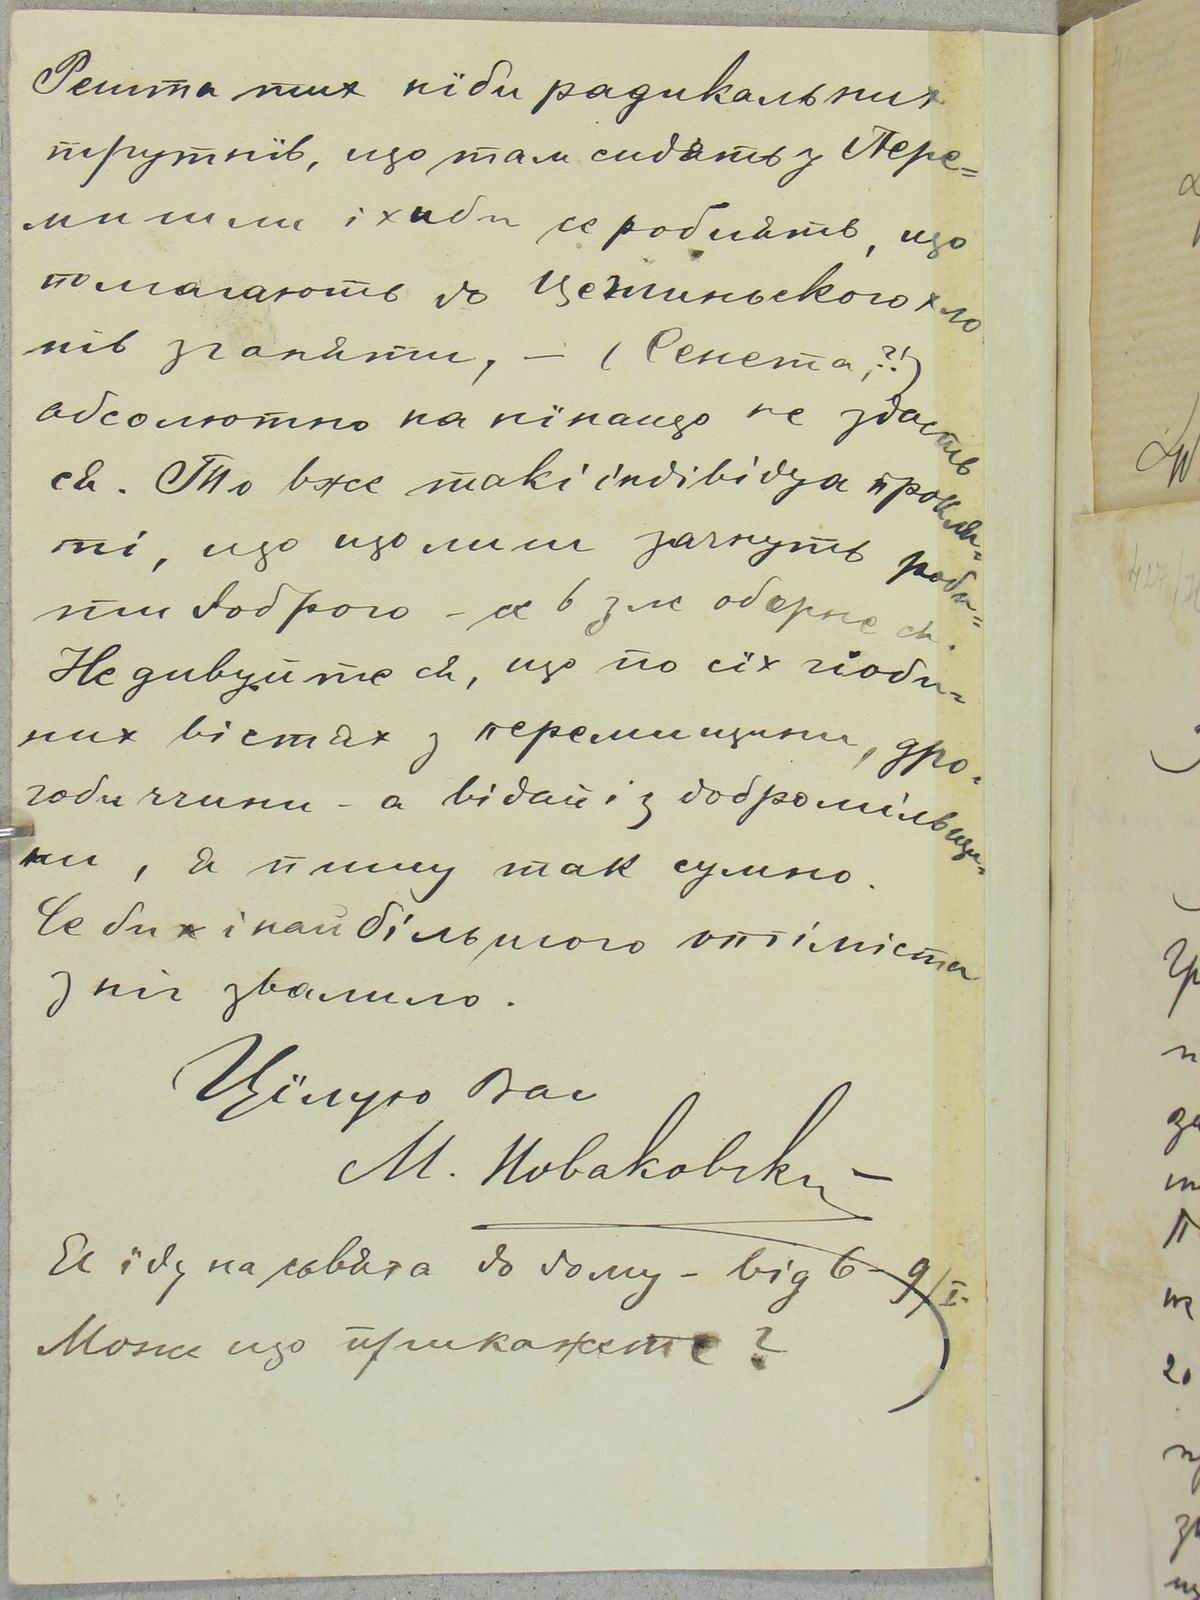 Решта тих нїби радикальних
трутнїв, що там сидять у Пере=
мишли і хиби се роблять, що
помагають до Цеглиньского хло
пів зганяти, — (Сенета,?!)
абсолютно на нїнащо не здасть
ся. То вже такі індівідуа прокля-
ті, що що лиш зачнуть роби=
ти доброго - се в зле оберне ся.
Не дивуйте ся, що по сїх
них вістях з перемищини, дро-
гобиччини - а відай і з добромільщи-
ни, я пишу так сумно.
Се би х і найбільшого оптіміста
з ніг звалило.
Цїлую Вас
М. Новаковский
Я їду на сьвята до дому - від 6 - 9/I.
Може що прикажете?